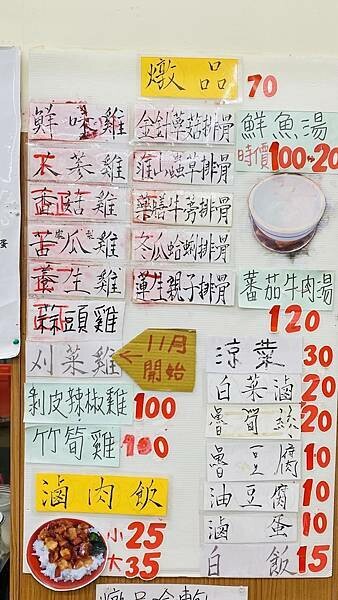 燉品 70
鮮味雞
人蔘雞
香菇雞
苦瓜雞
養生雞
蒜頭雞
刈菜雞 ← 11月開始
剝皮辣椒雞 100
竹筍雞 100
金針草菇排骨
淮山蟲草排骨
藥膳牛蒡排骨
冬瓜蛤蜊排骨
蓮生親子排骨
鮮魚湯
時價 100~120
蕃茄牛肉湯
120
滷肉飯
小 25
大 35
涼菜 30
白菜滷 20
魯筍絲 20
魯豆腐 10
油豆腐 10
滷蛋 10
白飯 15
蛋